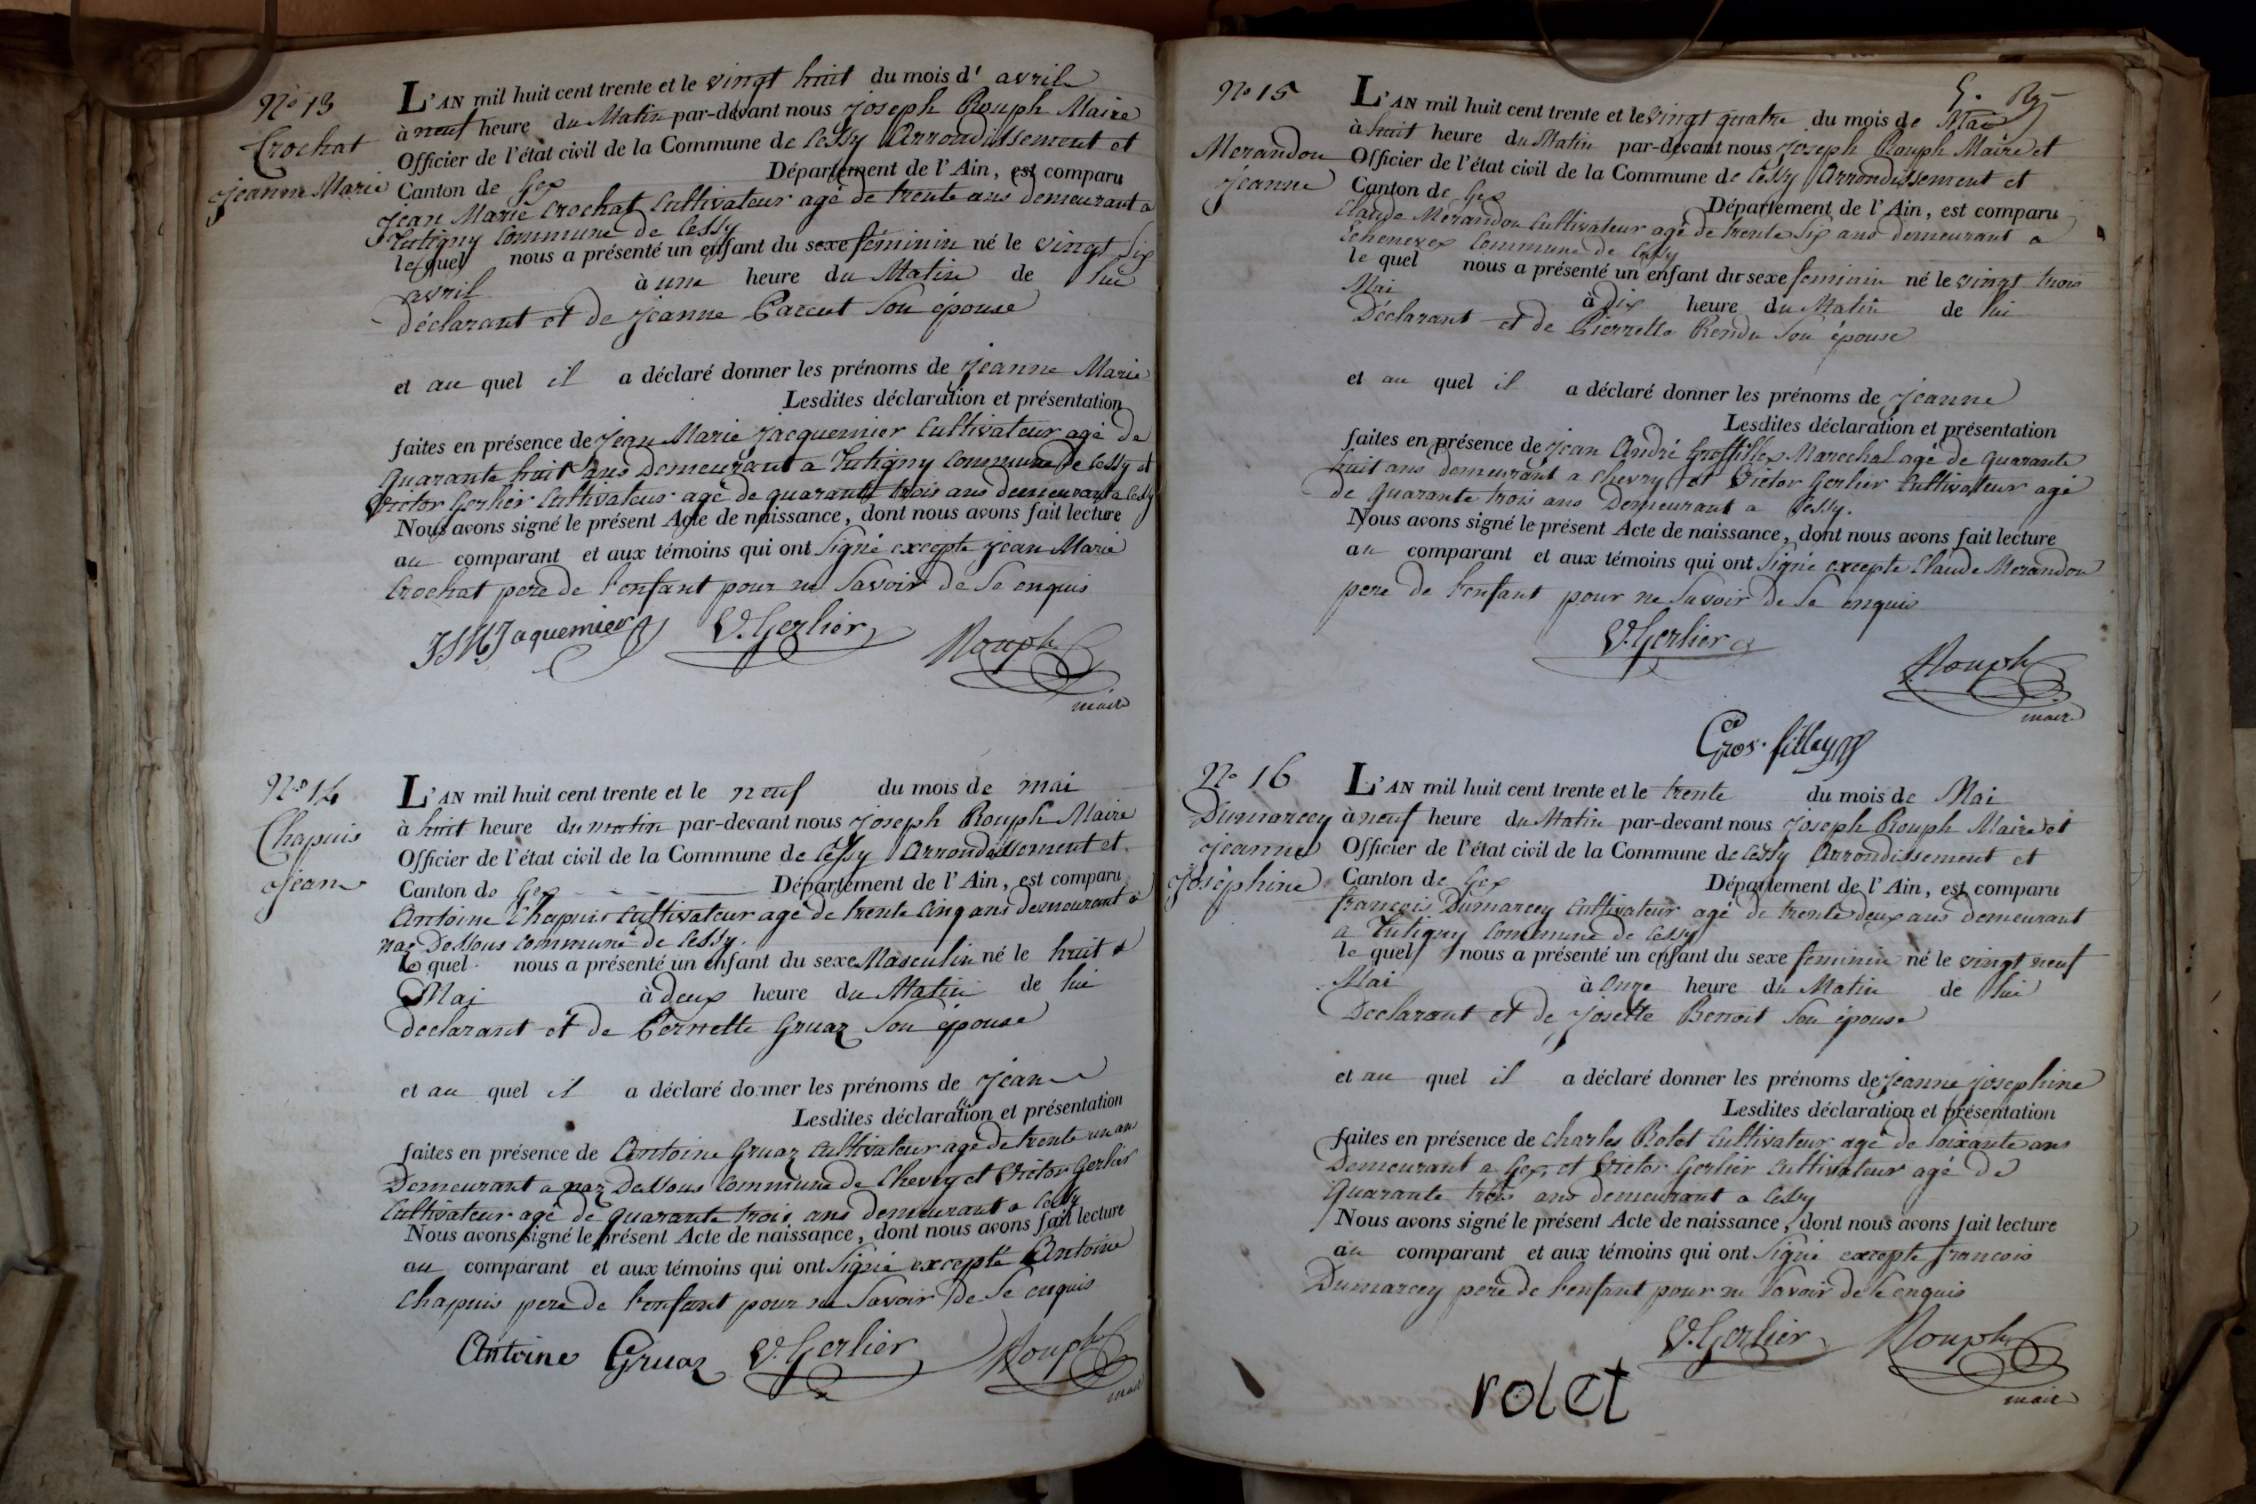 N° 13
Crochat
Jeanne Marie
L'AN mil huit cent trente et le vingt huit du mois d' avril
à neuf heure du Matin par-devant nous Joseph Rouph Maire
Officier de l'état civil de la Commune de Cessy Arrondissement et
Canton de Gex Département de l'Ain, est comparu
Jean Marie Crochat Cultivateur agé de trente ans demeurant a
Tutigny Commune de Cessy
le quel nous a présenté un enfant du sexe féminin né le vingt six
avril à une heure du Matin de lui
déclarant et de Jeanne Parent Son épouse
et au quel il a déclaré donner les prénoms de Jeanne Marie
Lesdites déclaration et présentation
faites en présence de Jean Marie Jacquemier Cultivateur agé de
quarante huit ans Demeurant a Tutigny Commune de Cessy et
Victor Gerlier Cultivateur agé de quarante trois ans demeurant a Cessy
Nous avons signé le présent Acte de naissance, dont nous avons fait lecture
au comparant et aux témoins qui ont Signé excepte Jean Marie
Crochat pere de l'enfant pour ne Savoir de Se enquis
JMJaquemier V. Gerlier Rouph
maire
N° 14
Chapuis
Jean
L'AN mil huit cent trente et le neuf du mois de mai
à huit heure du matin par-devant nous Joseph Rouph Maire
Officier de l'état civil de la Commune de Cessy Arrondissement et
Canton de Gex Département de l'Ain, est comparu
Antoine Chapuis Cultivateur agé de trente Cinq ans demeurant a
naz Dessous Commune de Cessy.
Le quel nous a présenté un enfant du sexe Masculin né le huit
Mai à deux heure du Matin de lui
declarant et de Pernette Gruaz Son épouse
et au quel il a déclaré donner les prénoms de Jean
Lesdites déclaration et présentation
faites en présence de Antoine Gruaz Cultivateur agé de trente un an
Demeurant a naz Dessous Commune de Chevry et Victor Gerlier
Cultivateur agé de quarante trois ans demeurant a Cessy
Nous avons signé le présent Acte de naissance, dont nous avons fait lecture
au comparant et aux témoins qui ont Signé excepté Antoine
Chapuis pere de l'enfant pour ne Savoir de Se enquis
Antoine Gruaz V. Gerlier Rouph
maire
N° 15
Merandon
Jeanne
L'AN mil huit cent trente et le vingt quatre du mois de Mai
à huit heure du Matin par-devant nous Joseph Rouph Maire et
Officier de l'état civil de la Commune de Cessy Arrondissement et
Canton de Gex Département de l'Ain, est comparu
Claude Merandon Cultivateur agé de trente Six ans demeurant a
Echenevex Commune de Cessy
le quel nous a présenté un enfant du sexe feminin né le vingt trois
Mai à Dix heure du Matin de lui
Déclarant et de Pierrette Rendu Son épouse
et au quel il a déclaré donner les prénoms de Jeanne
Lesdites déclaration et présentation
faites en présence de Jean André Grosfillex Marechal agé de quarante
huit ans demeurant a Chevry et Victor Gerlier Cultivateur agé
de quarante trois ans Demeurant a Cessy.
Nous avons signé le présent Acte de naissance, dont nous avons fait lecture
au comparant et aux témoins qui ont Signé excepte Claude Merandon
pere de l'enfant pour ne Savoir de Se enquis
V. Gerlier Rouph
maire
N° 16
Dumarcey
Jeanne
Joséphine
L'AN mil huit cent trente et le trente du mois de Mai
à neuf heure du Matin par-devant nous Joseph Rouph Maire et
Officier de l'état civil de la Commune de Cessy Arrondissement et
Canton de Gex Département de l'Ain, est comparu
francois Dumarcey Cultivateur agé de trente deux ans demeurant
a Tutigny Commune de Cessy
le quel nous a présenté un enfant du sexe feminin né le vingt neuf
Mai à Onze heure du Matin de lui
Declarant et de Josette Benoit Son épouse
et au quel il a déclaré donner les prénoms de Jeanne Josephine
Lesdites déclaration et présentation
faites en présence de Charles Rolet Cultivateur agé de Soixante ans
Demeurant a Gex et Victor Gerlier Cultivateur agé De
Quarante trois ans demeurant a Cessy
Nous avons signé le présent Acte de naissance, dont nous avons fait lecture
au comparant et aux témoins qui ont Signé excepte francois
Dumarcey pere de l'enfant pour ne Savoir de Se enquis
V. Gerlier Rouph
maire
rolet